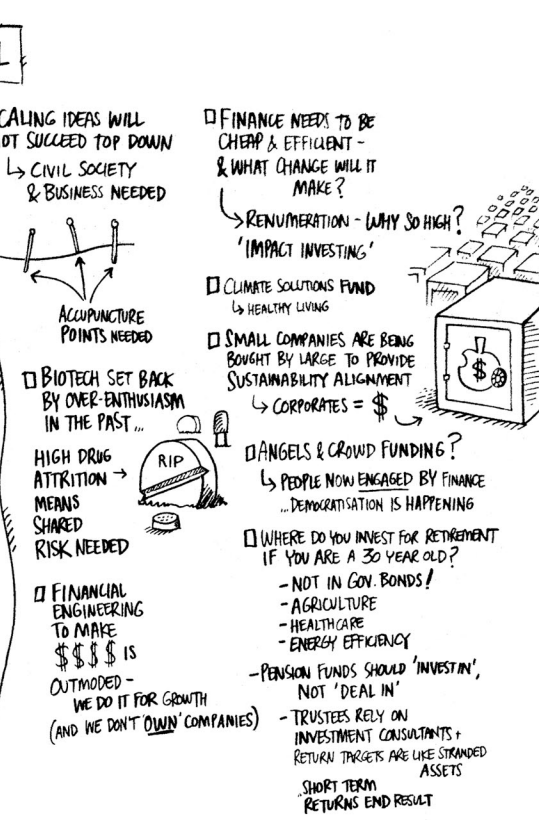 L
CALING IDEAS WILL
OT SUCCEED TOP DOWN
CIVIL SOCIETY
& BUSINESS NEEDED
ACCUPUNCTURE
POINTS NEEDED
BIOTECH SET BACK
BY OVER-ENTHUSIASM
IN THE PAST...
HIGH DRUG
ATTRITION →
MEANS
SHARED
RISK NEEDED
RIP
FINANCIAL
ENGINEERING
TO MAKE
$$$$ IS
OUTMODED -
WE DO IT FOR GROWTH
(AND WE DON'T 'OWN' COMPANIES)
FINANCE NEEDS TO BE
CHEAP & EFFICIENT -
& WHAT CHANGE WILL IT
MAKE?
RENUMERATION - WHY SO HIGH?
'IMPACT INVESTING'
CLIMATE SOLUTIONS FUND
HEALTHY LIVING
SMALL COMPANIES ARE BEING
BOUGHT BY LARGE TO PROVIDE
SUSTAINABILITY ALIGNMENT
CORPORATES = $
$
ANGELS & CROWD FUNDING?
PEOPLE NOW ENGAGED BY FINANCE
...DEMOCRATISATION IS HAPPENING
WHERE DO YOU INVEST FOR RETIREMENT
IF YOU ARE A 30 YEAR OLD?
- NOT IN GOV. BONDS!
- AGRICULTURE
- HEALTHCARE
- ENERGY EFFICIENCY
- PENSION FUNDS SHOULD 'INVEST IN',
NOT 'DEAL IN'
- TRUSTEES RELY ON
INVESTMENT CONSULTANTS +
RETURN TARGETS ARE LIKE STRANDED
ASSETS
..SHORT TERM
RETURNS END RESULT